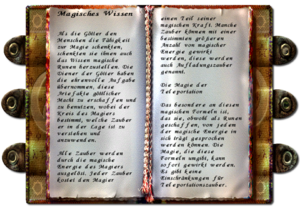 Magisches Wissen
Als die Götter den
Menschen die Fähigkeit
zur Magie schenkten,
schenkten sie ihnen auch
das Wissen magische
Runen herzustellen. Die
Diener der Götter haben
die ehrenvolle Aufgabe
übernommen, diese
Artefakte göttlicher
Macht zu erschaffen und
zu benutzen, wobei der
Kreis des Magiers
bestimmt, welche Zauber
er in der Lage ist zu
verstehen und
anzuwenden.
Alle Zauber werden
durch die magische
Energie des Magiers
ausgelöst. Jeder Zauber
kostet den Magier
einen Teil seiner
magischen Kraft. Manche
Zauber können mit einer
bestimmten größeren
Anzahl von magischer
Energie gewirkt
werden, diese werden
auch Aufladungszauber
genannt.
Die Magie der
Teleportation
Das besondere an diesen
magischen Formeln ist,
das sie, obwohl als Runen
geschaffen, von jedem
der magische Energie in
sich trägt gesprochen
werden können. Die
Magie, die diese
Formeln umgibt, kann
sofort gewirkt werden.
Es gibt keine
Einschränkungen für
Teleportationszauber.